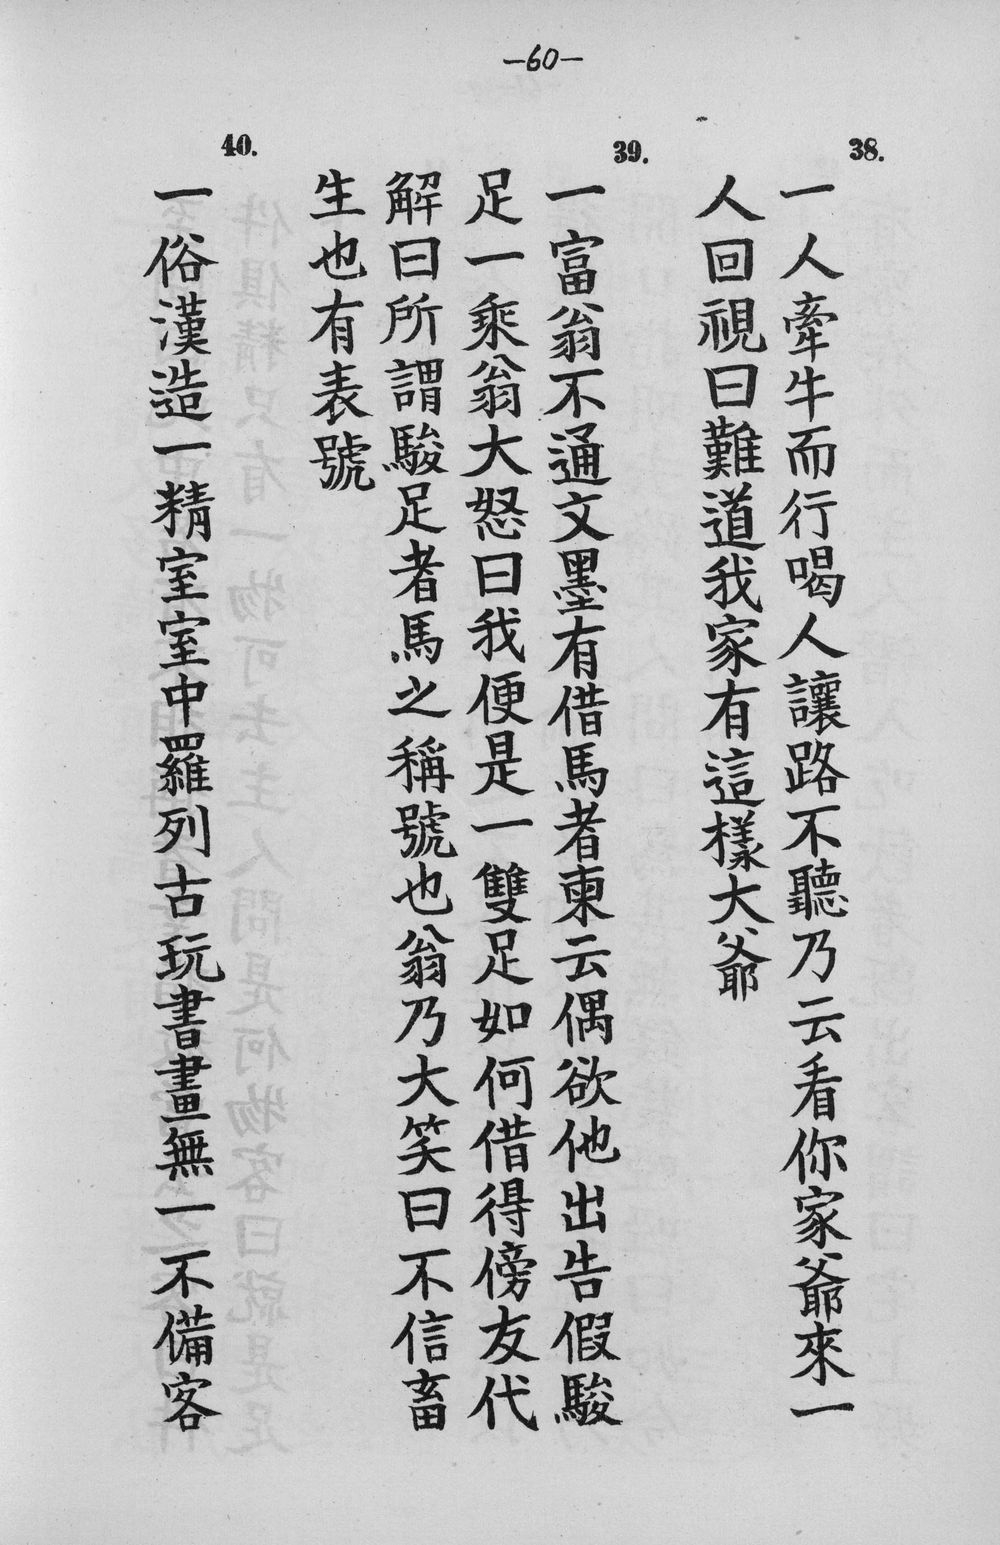 —60—
38.
一人牽牛而行喝人讓路不聽乃云看你家爺來一
人回視曰難道我家有這樣大爺
39.
一富翁不通文墨有借馬者柬云偶欲他出告假駿
足一乘翁大怒曰我便是一雙足如何借得傍友代
解曰所謂駿足者馬之稱號也翁乃大笑曰不信畜
生也有表號
40.
一俗漢造一精室室中羅列古玩書畫無一不備客